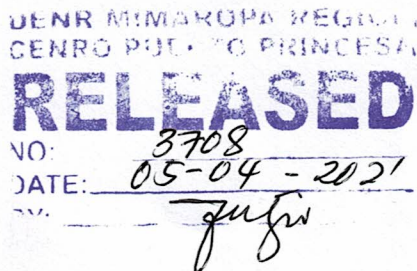 DENR MIMAROPA REGION
CENRO PUERTO PRINCESA
RELEASED
NO: 3708
DATE: 05-04-2021
BY: